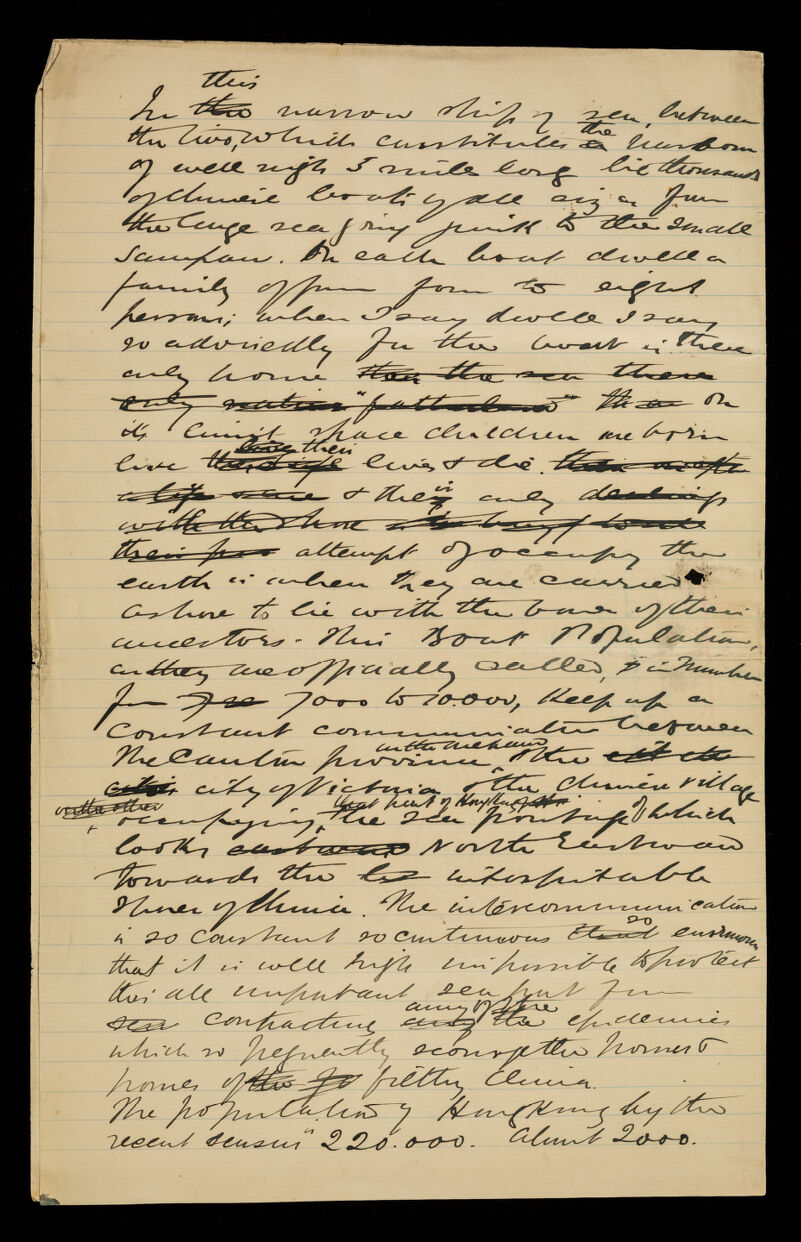 this
In the narrow strip of sea, between
the two, which constitutes a the Harbour
of well nigh 5 mile long lie thousands
of Chinese boats of all sizes from
the large sea going junk to the small
Sampan. In each boat dwell a
family of from four to eight
persons; when I say dwell I say
so advisedly for the boat is their
only home than the sea there
only nation "fatherland" On
its limited space children are born
live their lives & die. & their only dealings
with the shore
their attempt of occupy the
earth is when they are carried
ashore to lie with the bones of their
ancestors. This Boat Population,
as they are officially called, & in number
from 7000 to 10.000, Keep up a
constant communication between
the Canton province, on the one hand, & the
cities city of Victoria & the Chinese village
on the other occupying that part of Hong Kong the sea frontage of which
looks eastward North Eastward
towards the inhospitable
Shores of China. The intercommunication
is so constant so continuous so enormous
that it is well nigh impossible to protect
this all important sea port from
contracting any of the epidemics
which so frequently scourge the homes &
homes of the filthy China.
The population of Hong Kong by the
recent census is 220.000. About 2000.